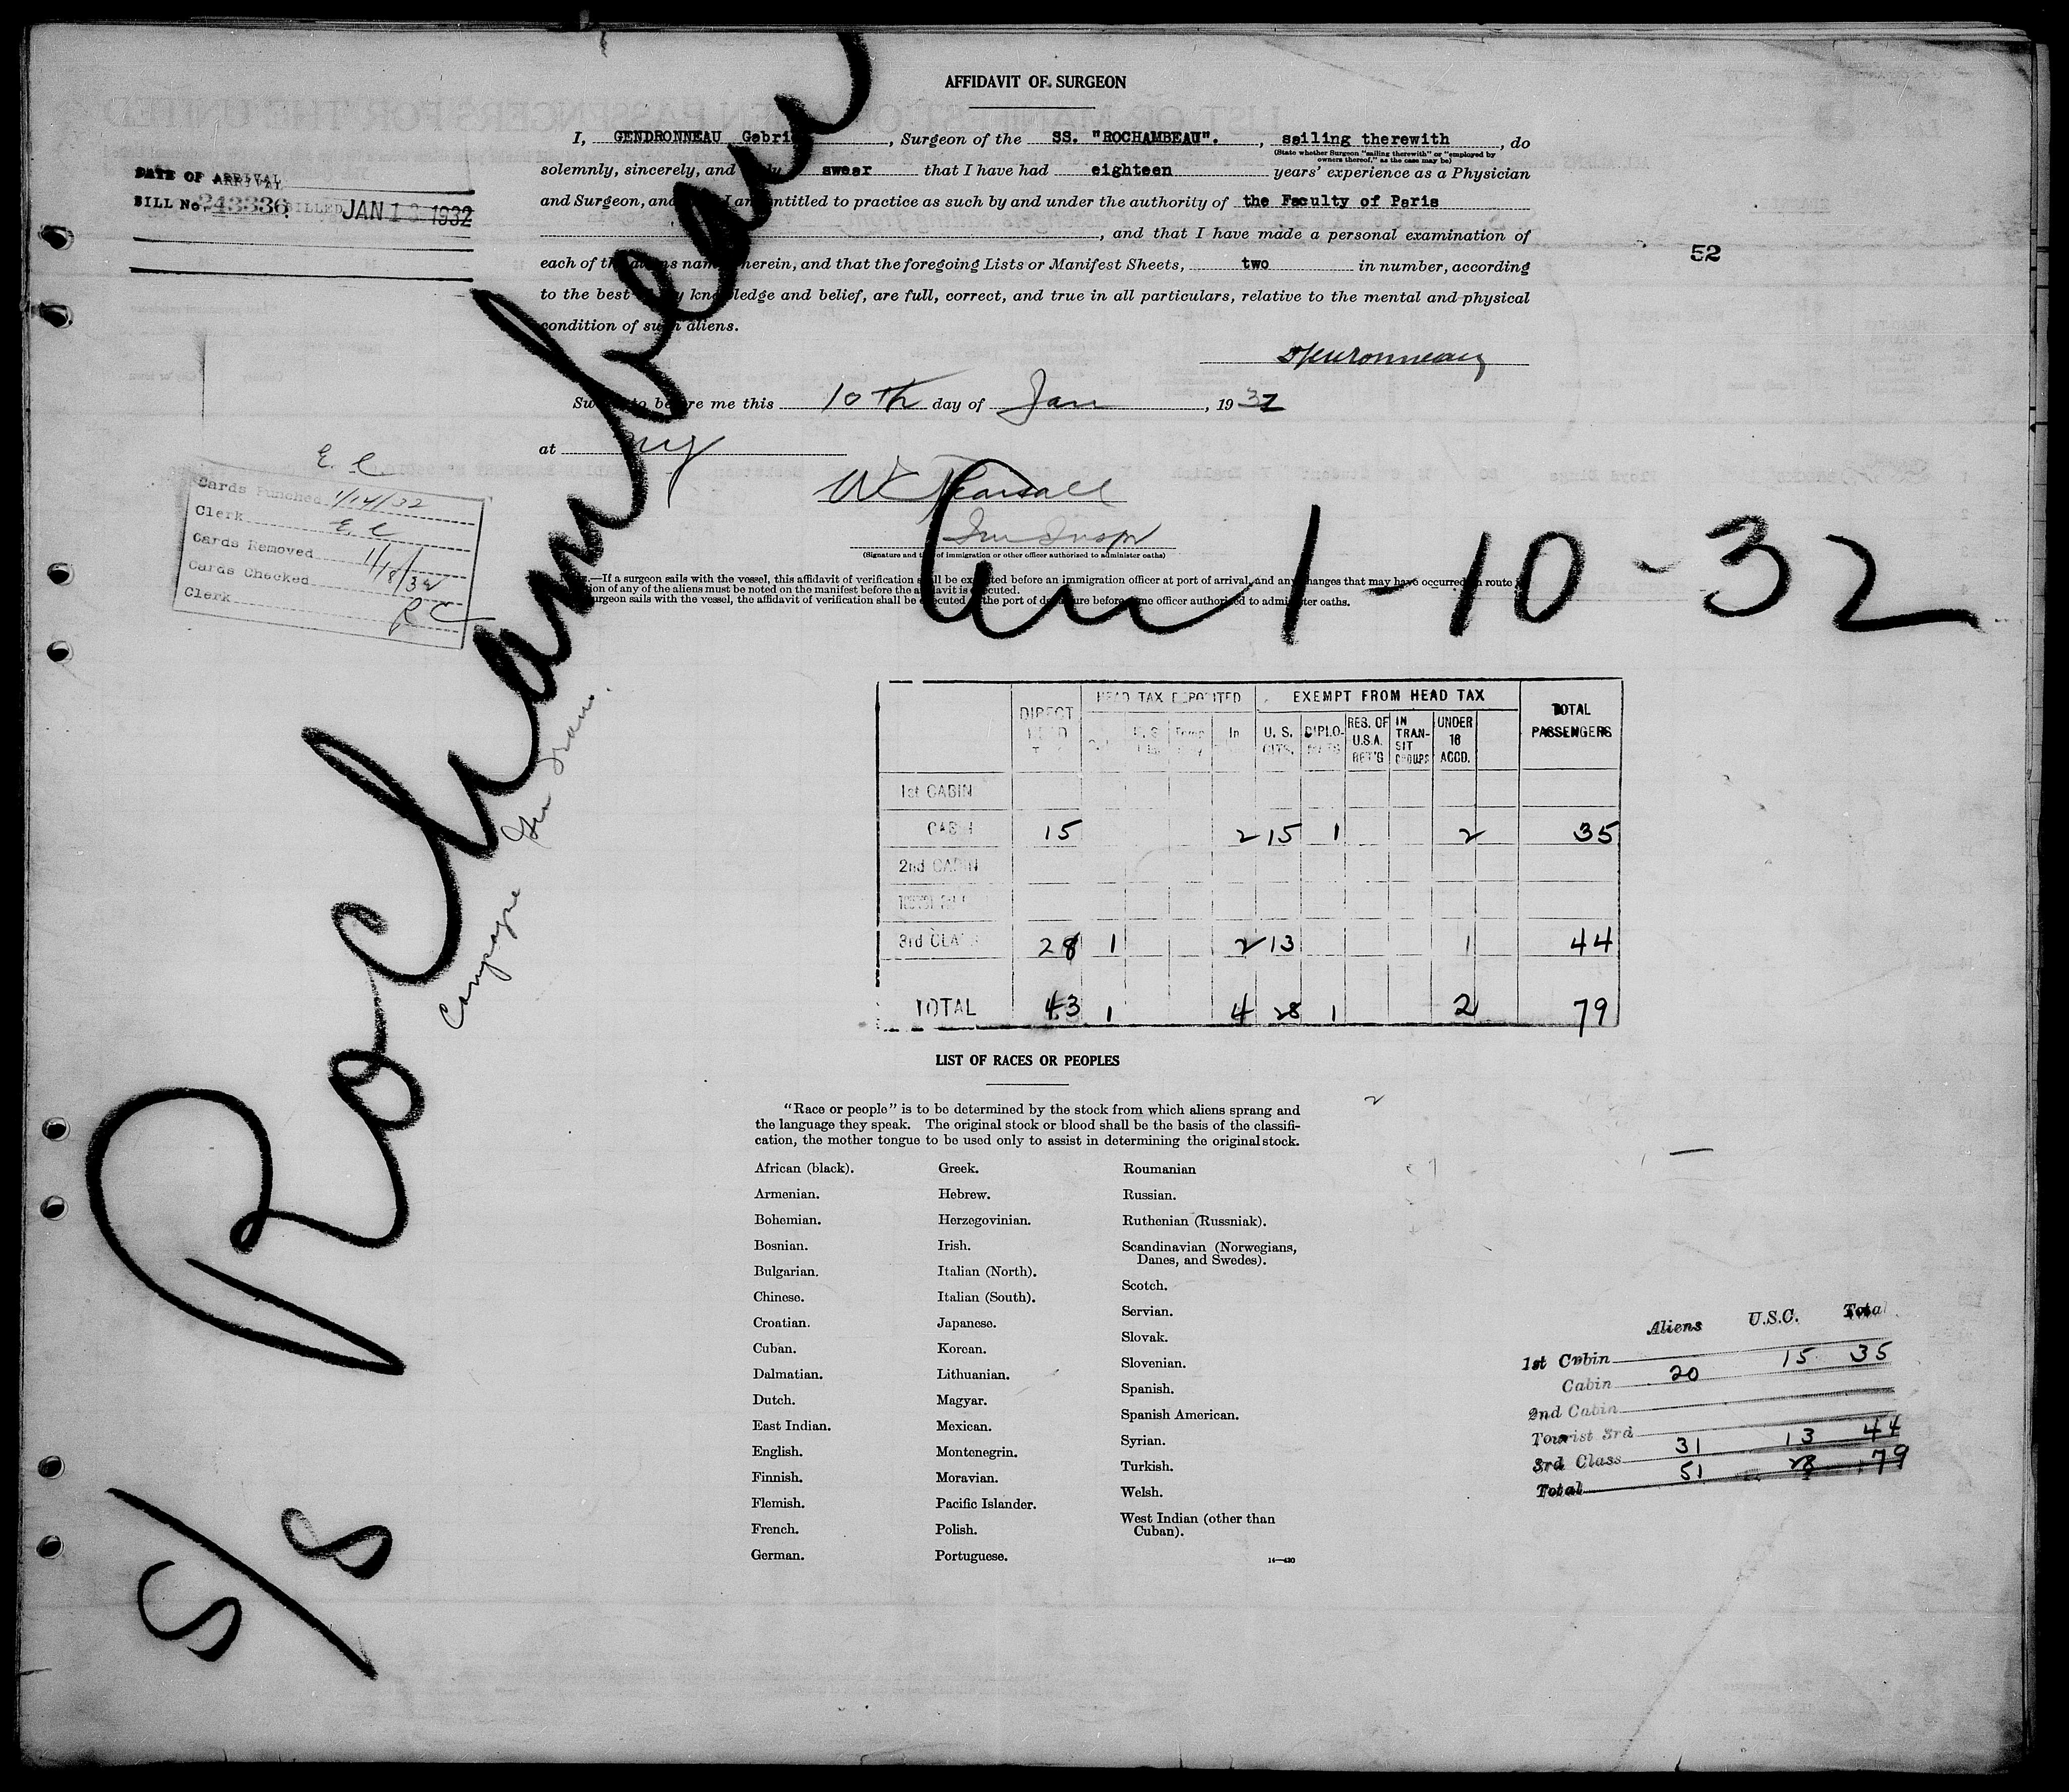 AFFIDAVIT OF SURGEON
I, GENDRONNEAU Gabri , Surgeon of the SS. "ROCHAMBEAU". , sailing therewith , do
(State whether Surgeon "sailing therewith" or "employed by
owners thereof," as the case may be)
solemnly, sincerely, and swear that I have had eighteen years' experience as a Physician
and Surgeon, and I am entitled to practice as such by and under the authority of the Faculty of Paris
, and that I have made a personal examination of
each of the aliens named herein, and that the foregoing Lists or Manifest Sheets, two in number, according
to the best my knowledge and belief, are full, correct, and true in all particulars, relative to the mental and physical
condition of such aliens.
DATE OF ARRIVAL
BILL No. 243336 BILLED JAN 13 1932
52
Sworn to before me this 10th day of Jan , 19 32
at ny
(Signature and title of immigration or other officer authorized to administer oaths)
.—If a surgeon sails with the vessel, this affidavit of verification shall be executed before an immigration officer at port of arrival, and any changes that may have occurred en route
tion of any of the aliens must be noted on the manifest before the affidavit is executed.
surgeon sails with the vessel, the affidavit of verification shall be executed at the port of departure before some officer authorized to administer oaths.
E. C.
Cards Punched 1/14/32
Clerk E. C
Cards Removed
Cards Checked 1/18/32
Clerk R C
S/S Rochambeau
Arr 1-10-32
DIRECT HEAD TAX
HEAD TAX DEPOSITED
EXEMPT FROM HEAD TAX
TOTAL PASSENGERS
In U. S. CITS. DIPLO-MATS RES. OF U.S.A. RET'G IN TRAN-SIT GROUPS UNDER 16 ACCD.
1st CABIN
CABIN 15 2 15 1 2 35
2nd CABIN
3rd CLASS 28 1 2 13 1 44
TOTAL 43 1 4 28 1 2 79
LIST OF RACES OR PEOPLES
"Race or people" is to be determined by the stock from which aliens sprang and
the language they speak. The original stock or blood shall be the basis of the classifi-
cation, the mother tongue to be used only to assist in determining the original stock.
African (black).
Armenian.
Bohemian.
Bosnian.
Bulgarian.
Chinese.
Croatian.
Cuban.
Dalmatian.
Dutch.
East Indian.
English.
Finnish.
Flemish.
French.
German.
Greek.
Hebrew.
Herzegovinian.
Irish.
Italian (North).
Italian (South).
Japanese.
Korean.
Lithuanian.
Magyar.
Mexican.
Montenegrin.
Moravian.
Pacific Islander.
Polish.
Portuguese.
Roumanian
Russian.
Ruthenian (Russniak).
Scandinavian (Norwegians,
Danes, and Swedes).
Scotch.
Servian.
Slovak.
Slovenian.
Spanish.
Spanish American.
Syrian.
Turkish.
Welsh.
West Indian (other than
Cuban).
Aliens U.S.C. Total
1st Cabin
Cabin 20 15 35
2nd Cabin
Tourist 3rd
3rd Class 31 13 44
Total 51 28 79